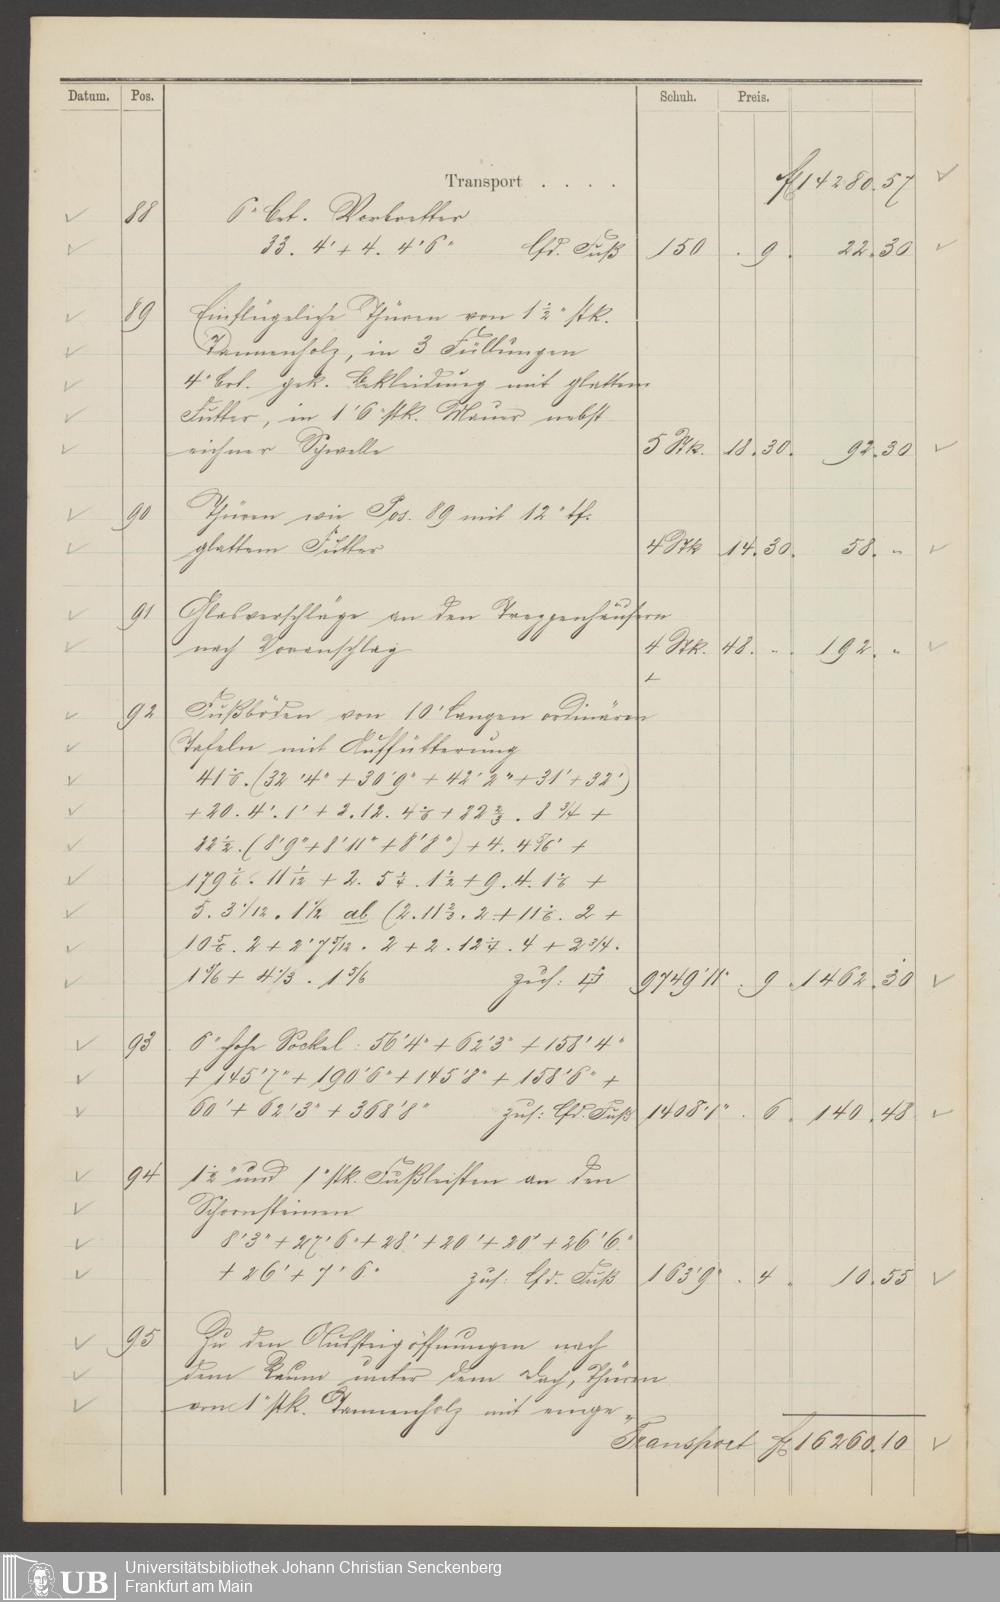 Datum. Pos. Schuh. Preis.
Transport . . . . fl 14280.57
88 6" brt. Vorbretter
33. 4' + 4. 4'6" lfd. Fuß 150 . 9. 22.30
89 Einflügeliche Thüren von 1½" stk.
Tannenholz, in 3 Füllungen
4" brt. gek. Bekleidung mit glattem
Futter, in 1'6" stk. Mauer nebst
eichner Schwelle 5 Stk. 18.30. 92.30
90 Thüren wie Pos. 89 mit 12" tf.
glattem Futter 4 Stk 14.30. 58. "
91 Glasverschläge an den Treppenhäusern
nach Voranschlag 4 Stk. 48. " . 192. "
92 Fußböden von 10' langen ordinären
Tafeln mit Auffütterung
41⅙. (32'4" + 30'9" + 42'2" + 31' + 32')
+ 20. 4'. 1' + 2. 12. 4⅙ + 22⅔ . 8¾ +
22½. (8'9" + 8'11" + 8'8") + 4. 4⅚' +
179⅙. 11 1/12 + 2. 5¼. 1½ + 9. 4. 1⅙ +
5. 3 1/12. 1½ ab (2. 11⅔. 2 + 11⅙. 2 +
10⅚. 2 + 2'7 5/12. 2 + 2. 12¼. 4 + 2¾.
1⅚ + 4⅓. 1⅚ zus: 9749'11" . 9. 1462.30
93 6" hohe Sockel: 56'4" + 62'3" + 158'4"
+ 145'7" + 190'6" + 145'8" + 158'6" +
60' + 62'3" + 368'8" zus: lfd. Fuß 1408'1" . 6. 140.48
94 1½" und 1" stk. Fußleisten an den
Schornsteinen
8'3" + 27'6" + 28' + 20' + 20' + 26'6"
+ 26' + 7'6" zus: lfd. Fuß 163'9" . 4. 10.55
95 Zu den Aussteigöffnungen nach
dem Raum unter dem Dach, Thüren
von 1" stk. Tannenholz mit einge-
Transport fl 16260.10
UB Universitätsbibliothek Johann Christian Senckenberg
Frankfurt am Main